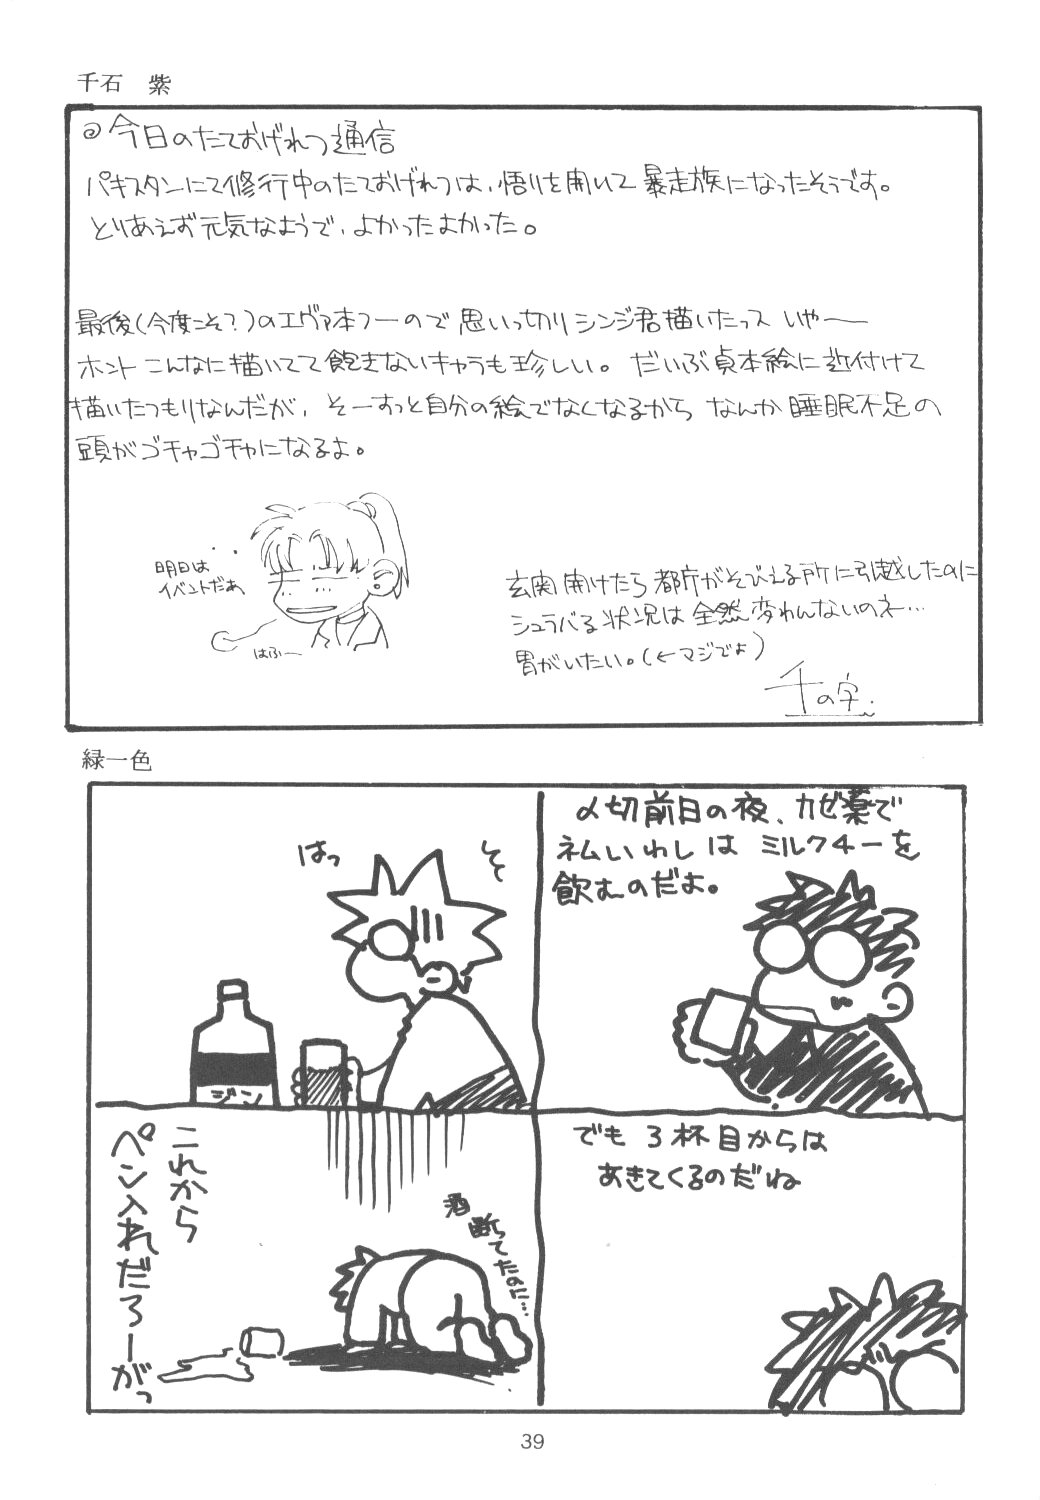 千石 紫
◎今日のたておげれつ通信
パキスタンにて修行中のたておげれつは、悟りを開いて暴走族になったそうです。
とりあえず元気なようで、よかったよかった。
最後(今度こそ?)のエヴァ本っーので思いっ切りシンジ君描いたっス いやー
ホント こんなに描いてて飽きないキャラも珍しい。 だいぶ貞本絵に近付けて
描いたつもりなんだが、そーすっと自分の絵でなくなるから なんか睡眠不足の
頭がゴチャゴチャになるよ。
明日は
イベントだぁ
はふー
玄関開けたら都庁がそびえる所に引越したのに
シュラバる状況は全然変わんないのネー…
胃がいたい。(←マジでよ)
千の字.
緑一色
〆切前日の夜、カゼ薬で
ネムいわしは ミルクチーを
飲むのだよ。
でも 3杯目からは
あきてくるのだね
はっ
そ
ジン
これから
ペン入れだろーがっ
酒
断ってたのに…
39